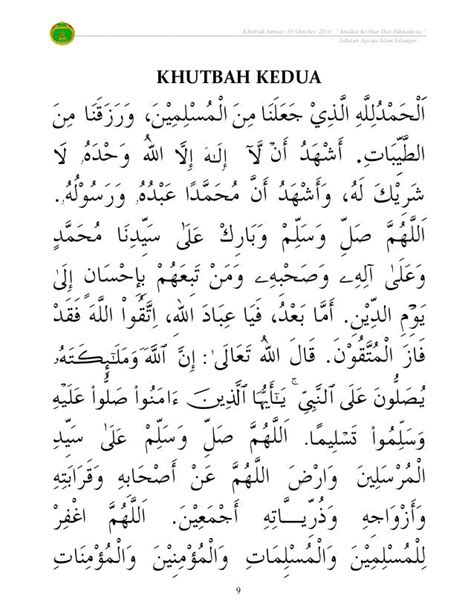 Khutbah Jumaat 03 Oktober 2014 "Amalan Korban Dan Hikmahnya"
Jabatan Agama Islam Selangor
KHUTBAH KEDUA
اَلْحَمْدُلِلَّهِ الَّذِيْ جَعَلَنَا مِنَ الْمُسْلِمِيْنَ، وَرَزَقَنَا مِنَ
الطَّيِّبَاتِ. أَشْهَدُ أَنْ لَّآ إِلَهَ إِلَّا اللهُ وَحْدَهُ لَا
شَرِيْكَ لَهُ، وَأَشْهَدُ أَنَّ مُحَمَّدًا عَبْدُهُ وَرَسُوْلُهُ.
اَللَّهُمَّ صَلِّ وَسَلِّمْ وَبَارِكْ عَلَى سَيِّدِنَا مُحَمَّدٍ
وَعَلَى آلِهِ وَصَحْبِهِ وَمَنْ تَبِعَهُمْ بِإِحْسَانٍ إِلَى
يَوْمِ الدِّيْنِ. أَمَّا بَعْدُ، فَيَا عِبَادَ اللهِ، اِتَّقُواْ اللَّهَ فَقَدْ
فَازَ الْمُتَّقُوْنَ. قَالَ اللهُ تَعَالَى: إِنَّ ٱللَّهَ وَمَلَـٰٓئِكَتَهُۥ
يُصَلُّونَ عَلَى ٱلنَّبِيِّ ۚ يَـٰٓأَيُّهَا ٱلَّذِينَ ءَامَنُواْ صَلُّواْ عَلَيْهِ
وَسَلِّمُواْ تَسْلِيمًا. اَللَّهُمَّ صَلِّ وَسَلِّمْ عَلَى سَيِّدِ
الْمُرْسَلِيْنَ وَارْضَ اللَّهُمَّ عَنْ أَصْحَابِهِ وَقَرَابَتِهِ
وَأَزْوَاجِهِ وَذُرِّيَّاتِهِ أَجْمَعِيْنَ. اَللَّهُمَّ اغْفِرْ
لِلْمُسْلِمِيْنَ وَالْمُسْلِمَاتِ وَالْمُؤْمِنِيْنَ وَالْمُؤْمِنَاتِ
9